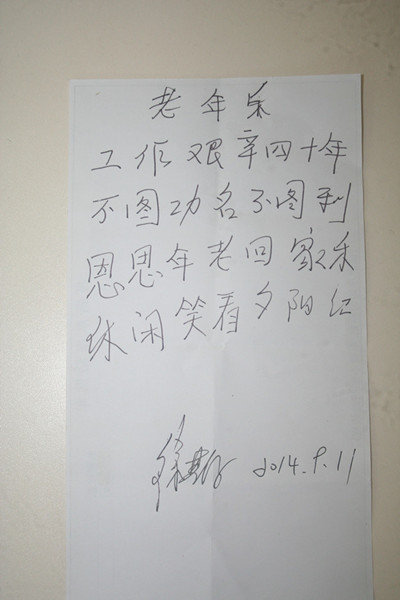 老年乐
工作艰辛四十年
不图功名不图利
恩思年老回家乐
休闲笑看夕阳红
2014.9.11